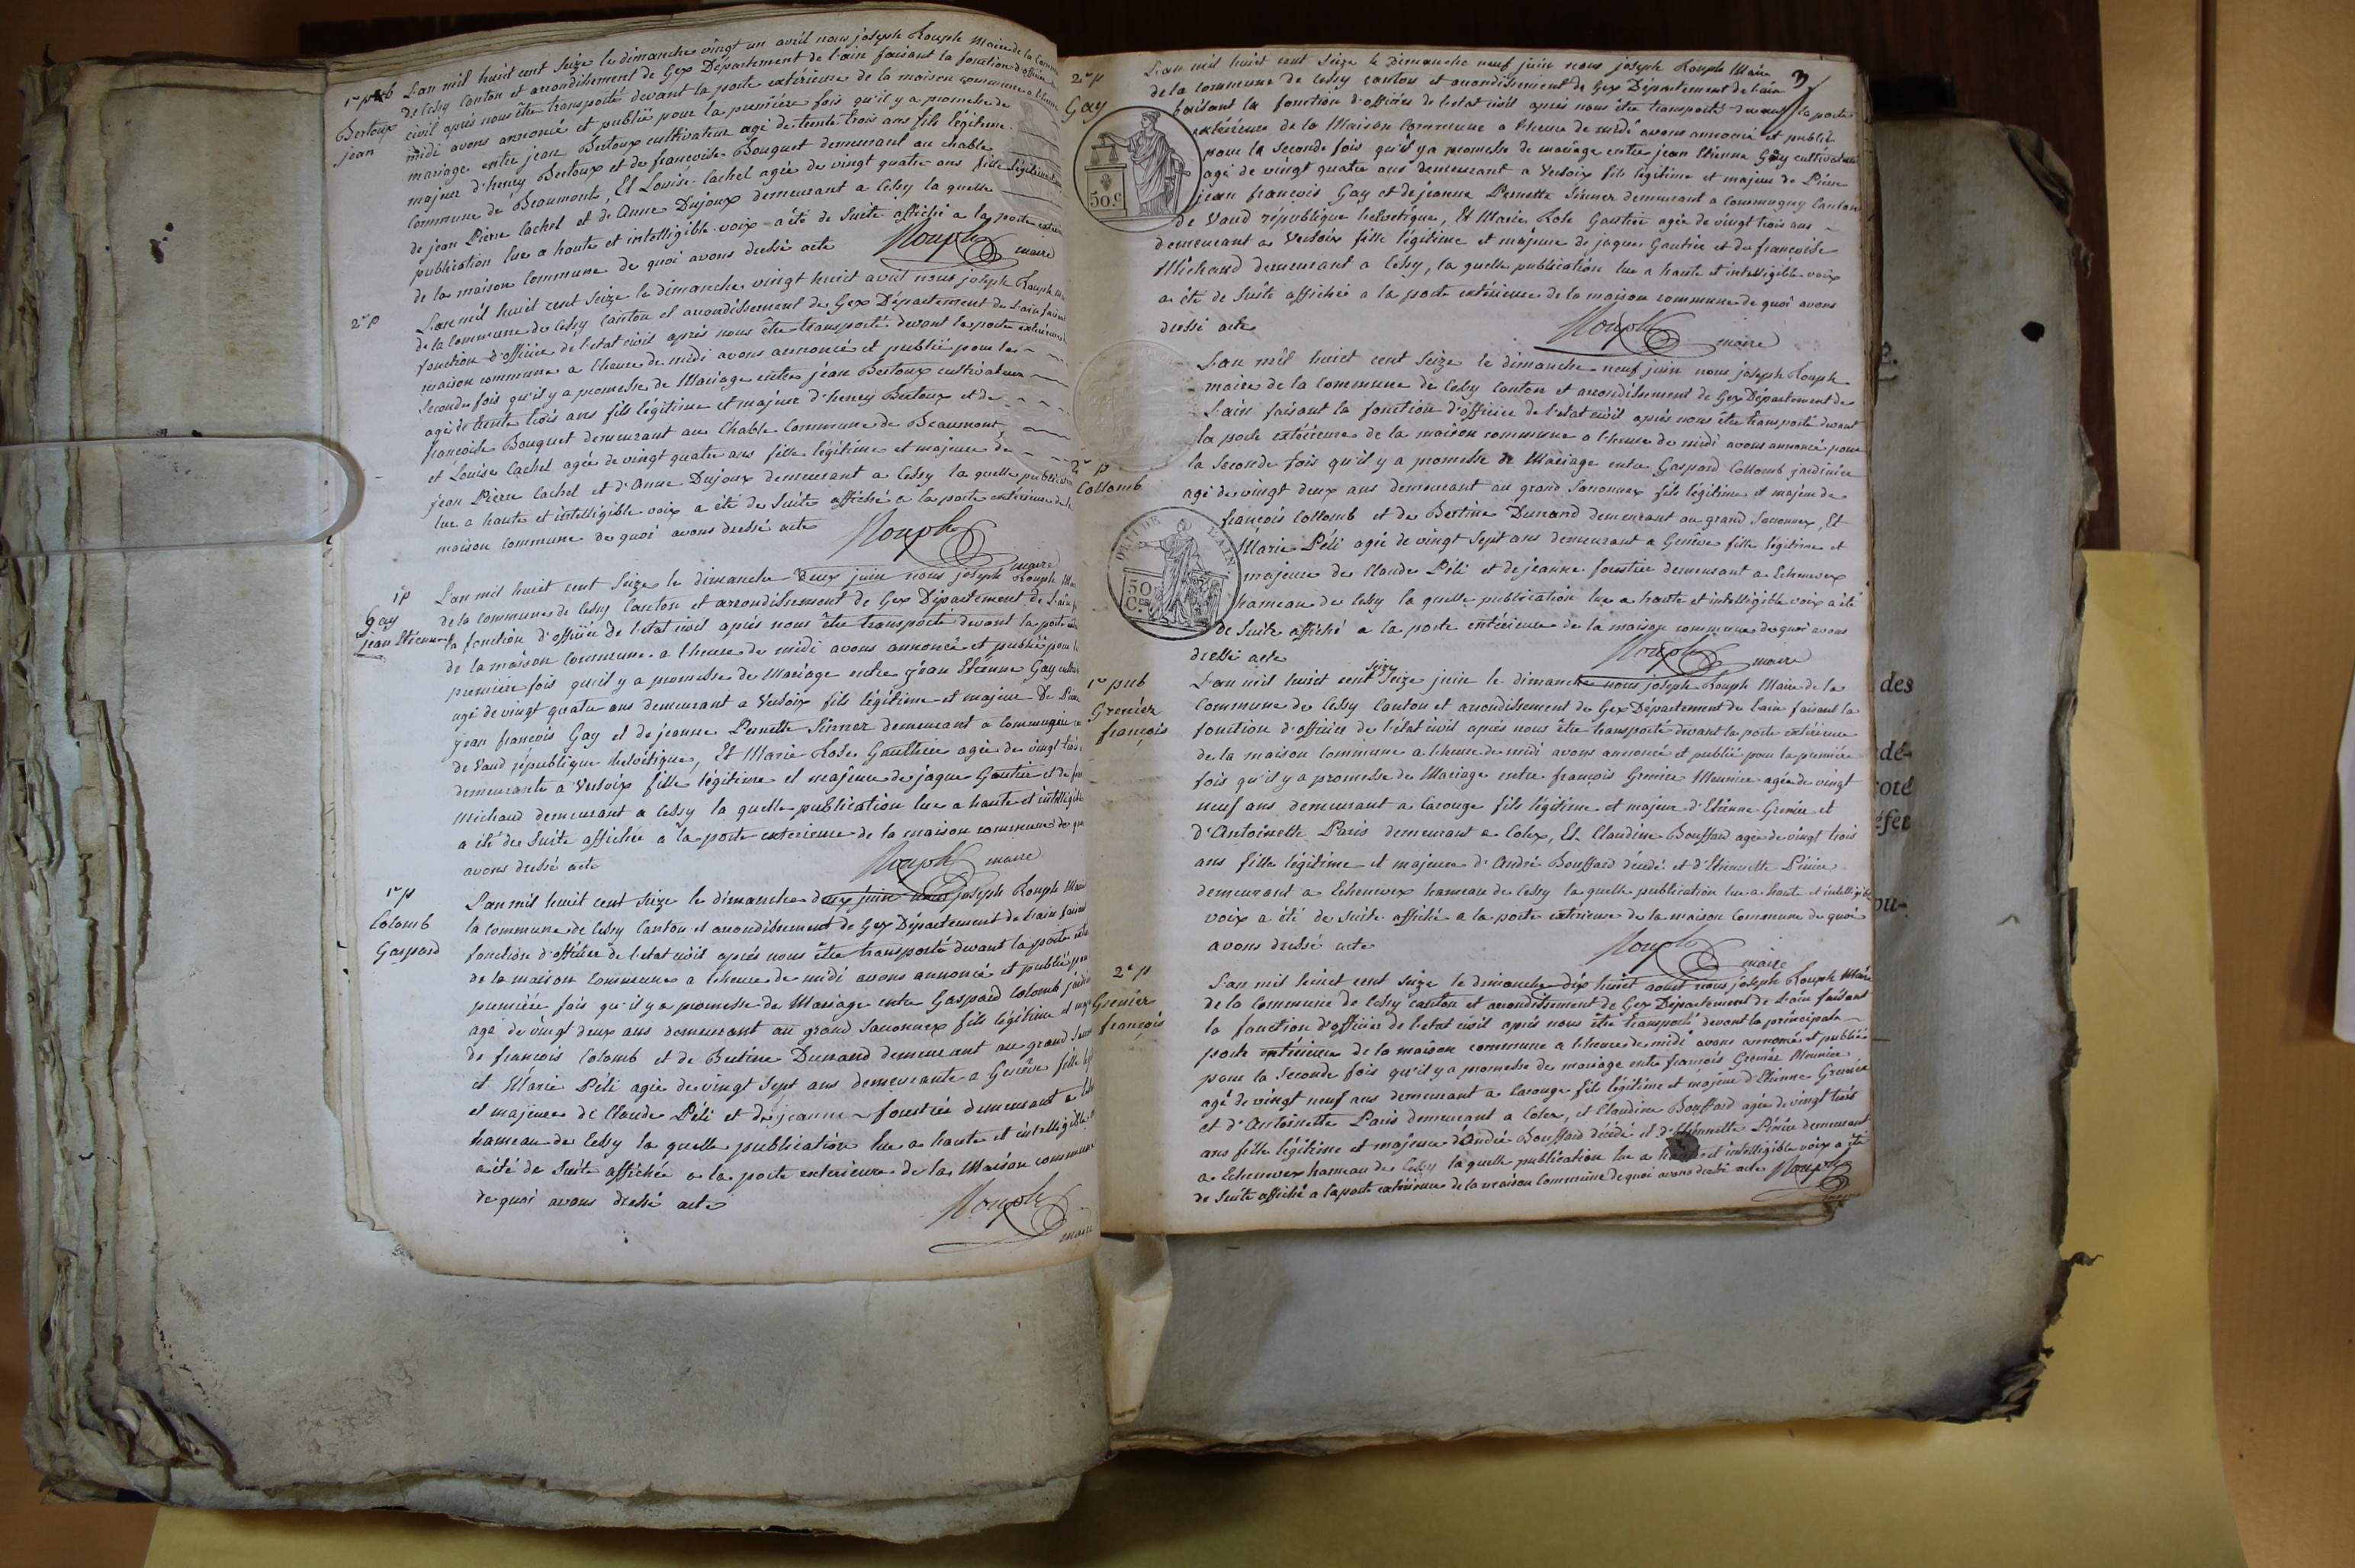 1re pub
Bertoux
jean
L'an mil huit cent Seize le dimanche vingt un avril nous joseph Rouph Maire de la Comm
de Cessy Canton et arrondissement de Gex Département de l'ain faisant la fonction d'officier
civil après nous être transporté devant la porte extérieure de la maison commune a l'heure
midi avons annoncé et publié pour la première fois qu'il y a promesse de
mariage entre jean Bertoux cultivateur agé de trente trois ans fils légitime
majeur d'henry Bertoux et de francoise Bouquet demeurant au chable
Commune de Beaumont, Et Louise Cachet agée de vingt quatre ans fille légitime
de jean Pierre Cachet et de Anne Dujoux demeurant a Cessy la quelle
publication lue a haute et intelligible voix a été de Suite affiché a la porte
de la maison Commune de quoi avons dressé acte
Rouph maire
2e p
L'an mil huit cent Seize le dimanche vingt huit avril nous joseph Rouph
de la Commune de Cessy Canton et arrondissement de Gex Département de l'ain
fonction d'officier de l'etat civil après nous être transporté devant la porte extérieure
maison commune a l'heure de midi avons annoncé et publié pour la
Seconde fois qu'il y a promesse de Mariage entre jean Bertoux cultivateur
agé de trente trois ans fils légitime et majeur d'henry Bertoux et de
francoise Bouquet demeurant au Chable Commune de Beaumont,
et Louise Cachet agée de vingt quatre ans fille légitime et majeure de
jean Pierre Cachet et d'Anne Dujoux demeurant a Cessy la quelle
lue a haute et intelligible voix a été de Suite affiché a la porte extérieure de la
maison Commune de quoi avons dressé acte
Rouph maire
1e p
Gay
jean Etienne
L'an mil huit cent Seize le dimanche Deux juin nous joseph Rouph
de la Commune de Cessy Canton et arrondissement de Gex Département de l'ain
la fonction d'officier de l'etat civil après nous être transporté devant la porte
de la maison Commune a l'heure de midi avons annoncé et publié pour la
première fois qu'il y a promesse de Mariage entre jean Etienne Gay
agé de vingt quatre ans demeurant a Versoix fils légitime et majeur De
jean francois Gay et de jeanne Pernette Sinner demeurant a Commugni
de Vaud république helvétique, Et Marie Rose Gauthier agée de vingt trois
demeurante a Versoix fille légitime et majeure de jaque Gautier et de
Michaud demeurant a Cessy la quelle publication lue a haute et intelligible
a été de Suite affichée a la porte exterieure de la maison commune de quoi
avons dressé acte
Rouph maire
1re p
Colomb
Gaspard
L'an mil huit cent Seize le dimanche deux juin nous joseph Rouph
la commune de Cessy Canton et arrondissement de Gex Département de l'ain
fonction d'officier de l'etat civil après nous être transporté devant la porte
de la maison Commune a l'heure de midi avons annoncé et publié
première fois qu'il y a promesse de Mariage entre Gaspard Colomb
agé de vingt deux ans demeurant au grand Saconnex fils légitime et
de francois Colomb et de Bertine Durand demeurant au grand
et Marie Péli agée de vingt Sept ans demeurante a Genève fille
et majeure de Claude Péli et de jeanne forestier demeurant a
hameau de Cessy la quelle publication lue a haute et intelligible
a été de Suite affichée a la porte exterieure de la Maison commune
de quoi avons dressé acte
Rouph maire
3
2e p
Gay
L'an mil huit cent Seize le Dimanche neuf juin nous joseph Rouph Maire
de la commune de Cessy canton et arrondissement de Gex Département de l'ain
faisant la fonction d'officier de l'etat civil après nous être transporté devant la porte
extérieure de la Maison Commune a l'heure de midi avons annoncé et publié
pour la Seconde fois qu'il y a promesse de mariage entre jean Etienne Gay cultivateur
agé de vingt quatre ans demeurant a Versoix fils légitime et majeur de Pierre
jean francois Gay et de jeanne Pernette Sinner demeurant a Commugny Canton
de Vaud république helvetique, Et Marie Rose Gautier agée de vingt trois ans
demeurant a Versoix fille légitime et majeure de jaques Gautier et de francoise
Michaud demeurant a Cessy, la quelle publication lue a haute et intelligible voix
a été de Suite affichée a la porte extérieure de la maison commune de quoi avons
dressé acte
Rouph maire
50 C
2e p
Collomb
L'an mil huit cent Seize le dimanche neuf juin nous joseph Rouph
maire de la Commune de Cessy Canton et arrondissement de Gex Département de
l'ain faisant la fonction d'officier de l'etat civil après nous être transporté devant
la porte extérieure de la maison commune a l'heure de midi avons annoncé pour
la Seconde fois qu'il y a promesse de Mariage entre Gaspard Collomb jardinier
agé de vingt deux ans demeurant au grand Saconnex fils légitime et majeur de
francois Collomb et de Bertine Durand demeurant au grand Saconnex, Et
Marie Péli agée de vingt Sept ans demeurant a Genêve fille légitime et
majeure de Claude Péli et de jeanne forestier demeurant a Echenevex
hameau de Cessy la quelle publication lue a haute et intelligible voix a été
de Suite affiché a la porte extérieure de la maison commune de quoi avons
dressé acte
Rouph maire
DEP. DE L'AIN
50 Ces
1re pub
Grenier
francois
seize
L'an mil huit cent Seize juin le dimanche nous joseph Rouph Maire de la
Commune de Cessy Canton et arrondissement de Gex Département de l'ain faisant la
fonction d'officier de l'état civil après nous être transporté devant la porte extérieure
de la maison Commune a l'heure de midi avons annoncé et publié pour la première
fois qu'il y a promesse de Mariage entre francois Grenier Meunier agé de vingt
neuf ans demeurant a Carouge fils légitime et majeur d'Etienne Grenier et
d'Antoinette Paris demeurant a Colex, Et Claudine Bouffard agée de vingt trois
ans fille légitime et majeure d'André Bouffard décédé et d'Etiennette Périer
demeurant a Echenevex hameau de Cessy la quelle publication lue a haute et intelligible
voix a été de Suite affiché a la porte extérieure de la maison Commune de quoi
avons dressé acte
Rouph maire
2e p
Grenier
francois
L'an mil huit cent Seize le dimanche dix huit aoust nous joseph Rouph Maire
de la Commune de Cessy canton et arrondissement de Gex Département de l'ain faisant
la fonction d'officier de l'etat civil après nous être transporté devant la principale
porte extérieure de la maison commune a l'heure de midi avons annoncé et publié
pour la Seconde fois qu'il y a promesse de mariage entre francois Grenier Meunier
agé de vingt neuf ans demeurant a Carouge fils légitime et majeur d'Etienne Grenier
et d'Antoinette Paris demeurant a Colex, et Claudine Bouffard agée de vingt trois
ans fille légitime et majeure d'André Bouffard décédé et d'Etiennette Périer demeurant
a Echenevex hameau de Cessy la quelle publication lue a et intelligible voix a été
de Suite affiché a la porte extérieure de la maison Commune de quoi avons dressé acte Rouph
des
dé-
coté
éfet
ou-